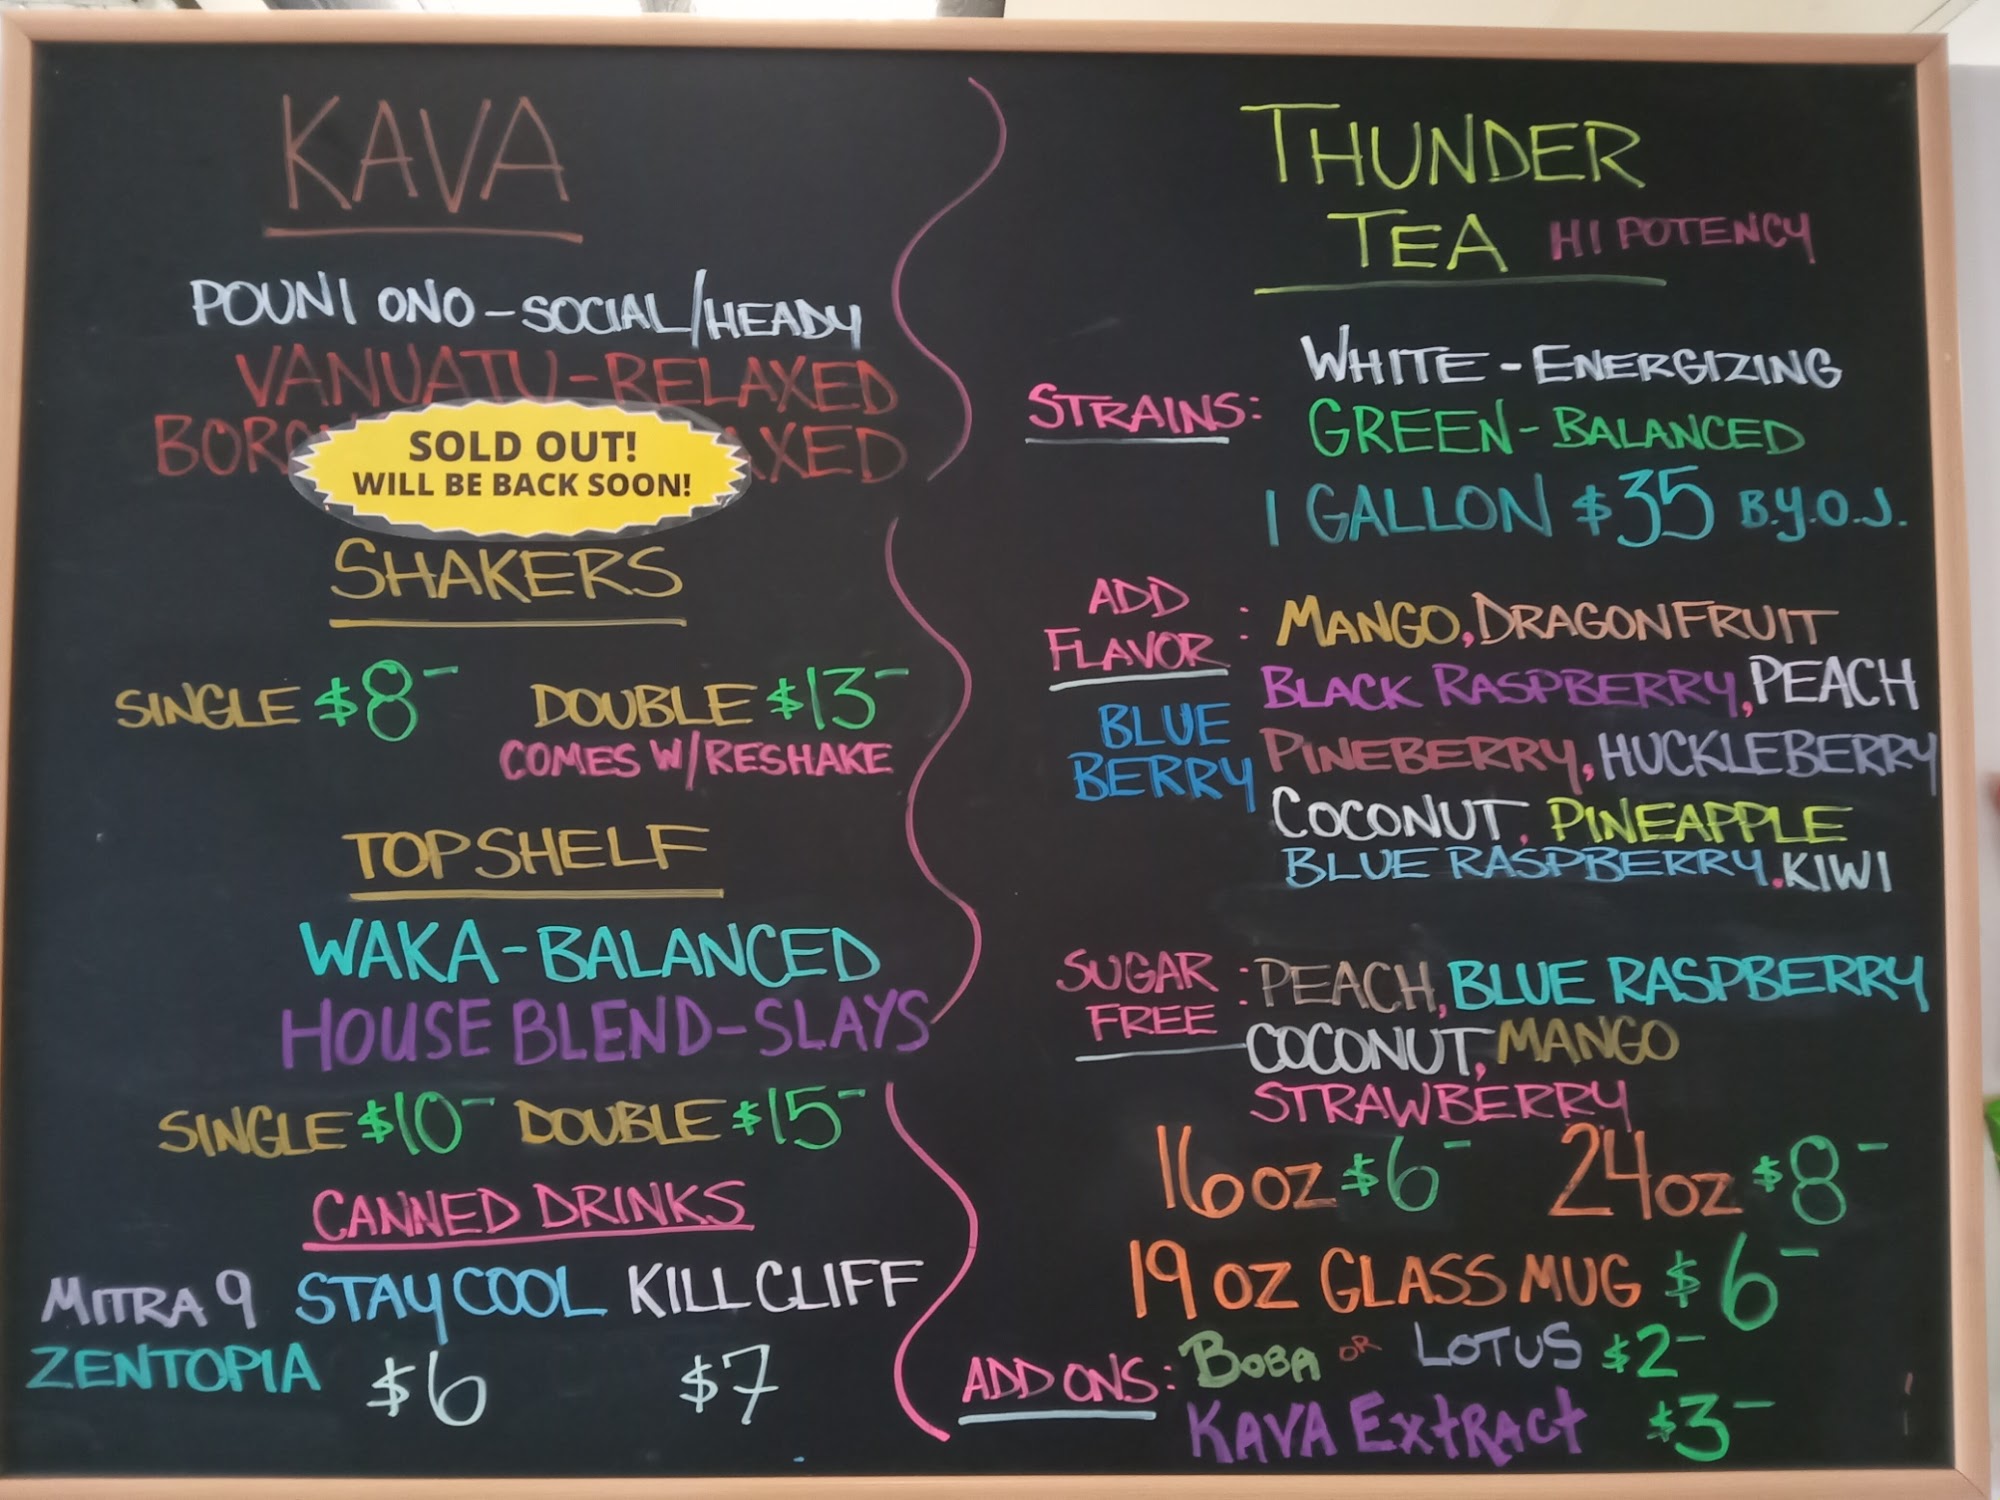 KAVA
POUNI ONO - SOCIAL/HEADY
VANUATU - RELAXED
SOLD OUT!
WILL BE BACK SOON!
SHAKERS
SINGLE $8- DOUBLE $13-
COMES W/RESHAKE
TOPSHELF
WAKA - BALANCED
HOUSE BLEND - SLAYS
SINGLE $10- DOUBLE $15-
CANNED DRINKS
MITRA 9 STAY COOL KILL CLIFF
ZENTOPIA $6 $7
THUNDER
TEA HI POTENCY
STRAINS:
WHITE - ENERGIZING
GREEN - BALANCED
1 GALLON $35 B.Y.O.J.
ADD
FLAVOR :
BLUE
BERRY
MANGO, DRAGONFRUIT
BLACK RASPBERRY, PEACH
PINEBERRY, HUCKLEBERRY
COCONUT, PINEAPPLE
BLUE RASPBERRY, KIWI
SUGAR
FREE :
PEACH, BLUE RASPBERRY
COCONUT, MANGO
STRAWBERRY
16 OZ $6- 24 OZ $8-
19 OZ GLASS MUG $6-
ADD ONS: BOBA OR LOTUS $2-
KAVA EXTRACT $3-